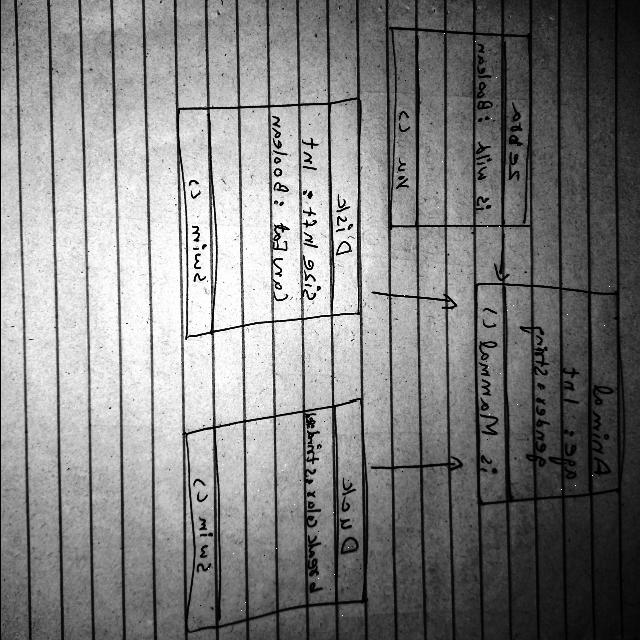 Animal
age: Int
gender: String
is Mammal ()
Zebra
is wild: Boolean
Run ()
Fish
size : Int
can Eat: Boolean
swim ()
Duck
beak color: String
swim ()